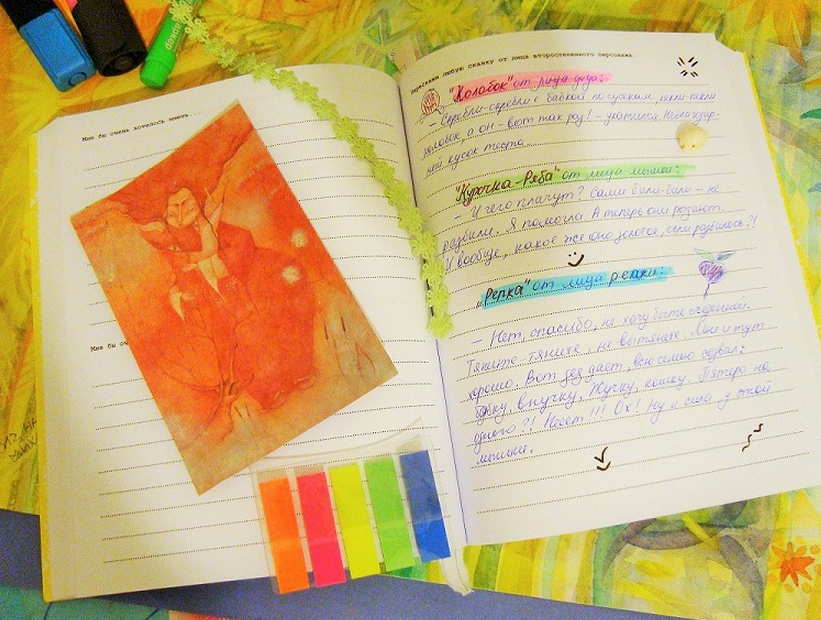 маркер
Мне бы очень хотелось иметь...
Мне бы оч
Перескажи любую сказку от лица второстепенного персонажа.
"Колобок" от лица деда:
Скребли-скребли с бабкой по сусекам, пекли-пекли
колобок, а он - вот так раз! - укатился. Неблагодар-
ный кусок теста.
"Курочка-Ряба" от лица мышки:
- И чего плачут? Сами били-били - не
разбили. Я помогла. А теперь они рыдают.
И вообще, какое же оно золотое, если разбилось?!
"Репка" от лица репки:
- Нет, спасибо, не хочу быть съеденной.
Тяните-тяните, не вытяните. Мне и тут
хорошо. Вот дед дает, всю семью созвал:
бабку, внучку, Жучку, кошку. Пятеро на
одного?! Несет!!! Ох! Ну и сила у этой
мышки.